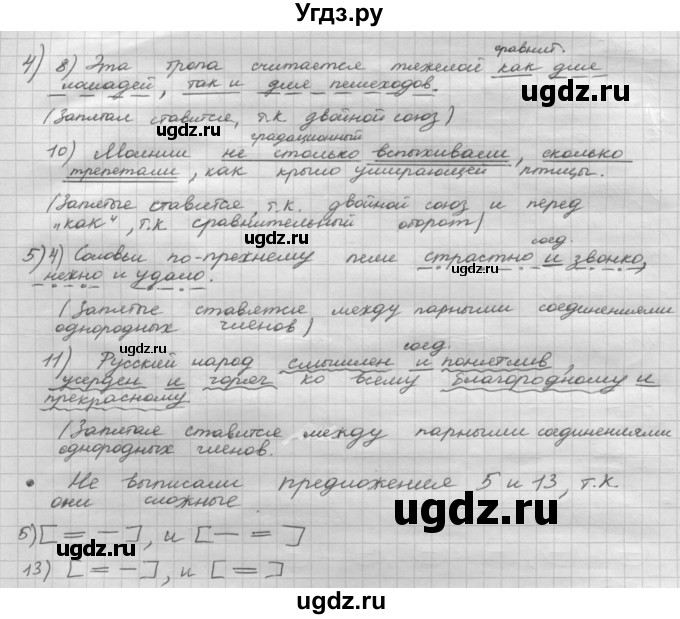 Угдз.ру
сравнит.
4) 8) Эта тропа считается тяжелой как для
лошадей, так и для пешеходов.
(Запятая ставится, т.к двойной союз)
градационный
10) Молнии не столько вспыхивали, сколько
трепетали, как крыло умирающей птицы.
(Запятые ставятся, т.к. двойной союз и перед
"как", т.к сравнительный оборот)
соед.
5) 4) Соловьи по-прежнему пели страстно и звонко,
нежно и удало.
(Запятые ставятся между парными соединениями
однородных членов)
соед.
11) Русский народ смышлен и понятлив,
усерден и горяч ко всему благородному и
прекрасному
(Запятая ставится между парными соединениями
однородных членов.
• Не выписали предложения 5 и 13, т.к.
они сложные
5) [= –], и [– =]
13) [= –], и [=]
ugdz.ru
ugdz.ru
ugdz.ru
ugdz.ru
ugdz.ru
ugdz.ru
ugdz.ru
ugdz.ru
ugdz.ru
ugdz.ru
ugdz.ru